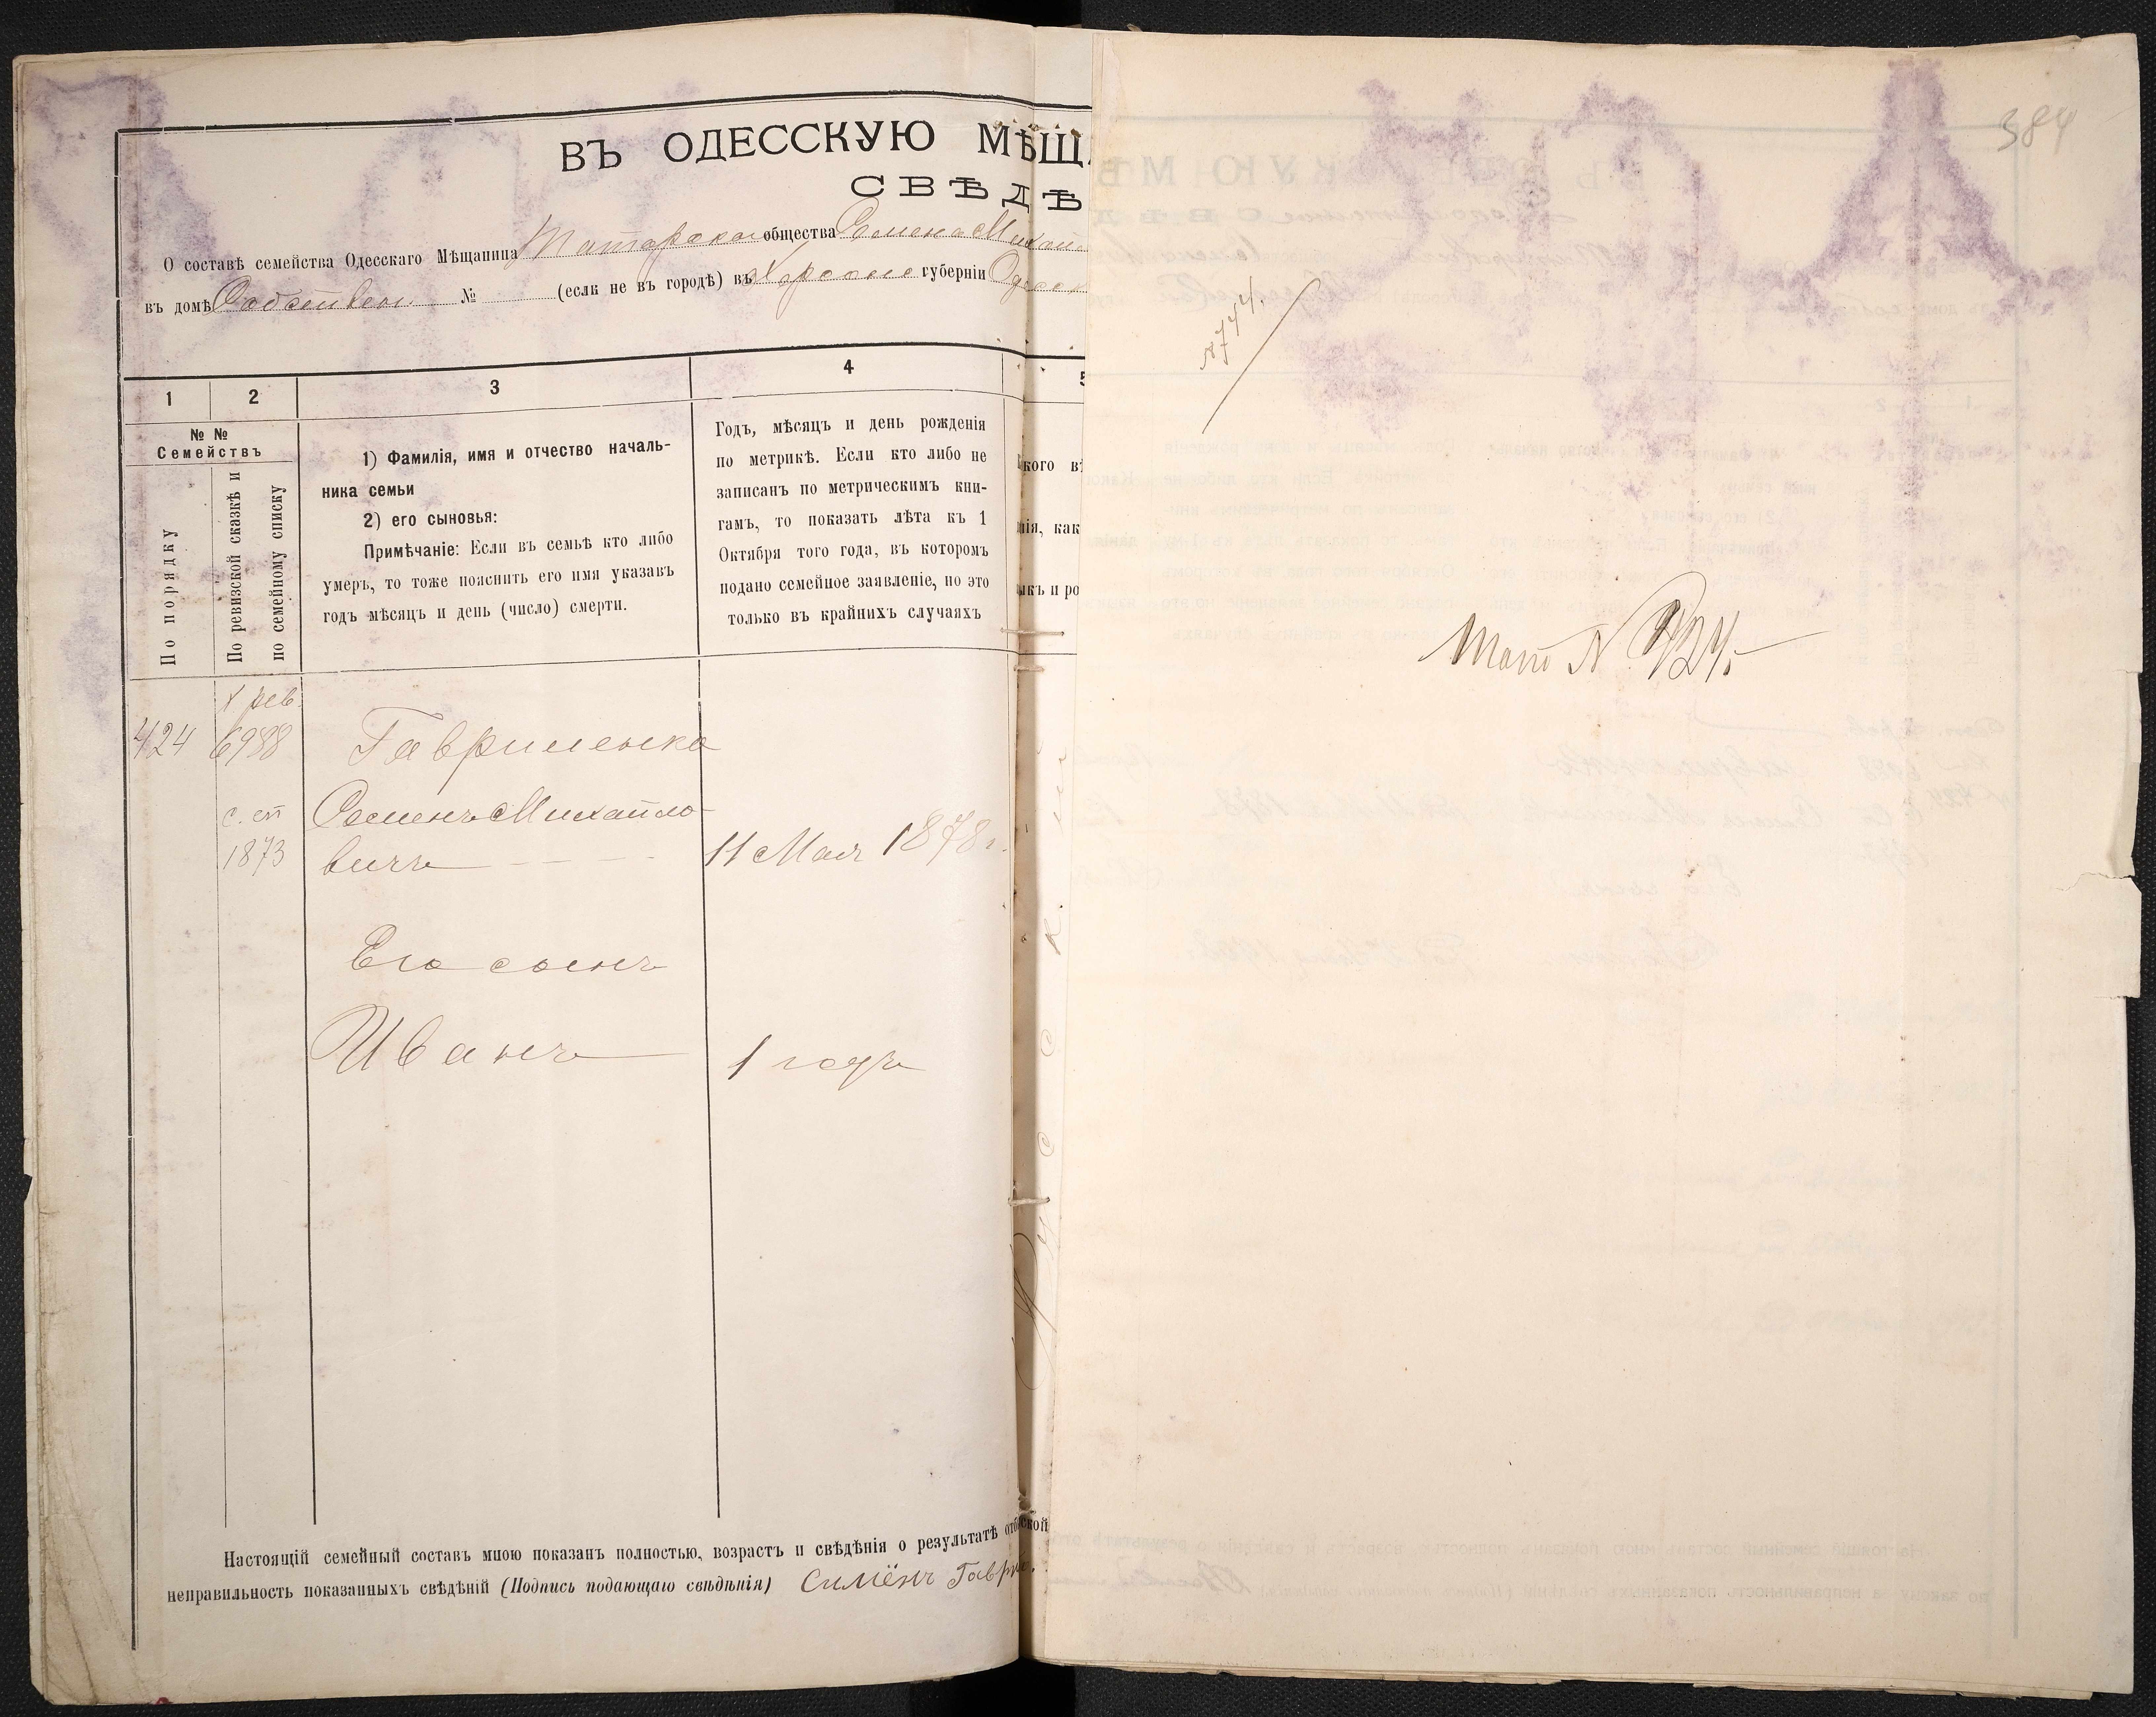 ВЪ ОДЕССКУЮ МѢЩ
СВѢДѢ
О составѣ семейства Одесскаго Мѣщанина Татарскаго общества Семена Михай
въ домѣ Собствен № (если не въ городѣ) въ Херсоне губерніи Одесск
1 2 3 4 5
№ №
Семействъ
По порядку
По ревизской сказкѣ и
по семейному списку
1) Фамилія, имя и отчество началь-
ника семьи
2) его сыновья:
Примѣчаніе: Если въ семьѣ кто либо
умеръ, то тоже пояснить его имя указавъ
годъ мѣсяцъ и день (число) смерти.
Годъ, мѣсяцъ и день рожденія
по метрикѣ. Если кто либо не
записанъ по метрическимъ кни-
гамъ, то показать лѣта къ 1
Октября того года, въ которомъ
подано семейное заявленіе, но это
только въ крайнихъ случаяхъ
кого вѣ
нія, как
ыкъ и ро
X рев.
424 6988 Гавриленко
с. сп Семенъ Михайло-
1873 вичъ 11 Мая 1878 г.
Его сынъ
Иванъ 1 годъ
Настоящій семейный составъ мною показанъ полностью, возрастъ и свѣдѣнія о результатѣ отб
ской
неправильность показанныхъ свѣдѣній (Подпись подающаго свѣдѣнія) Симёнъ Гаври
384
№744.